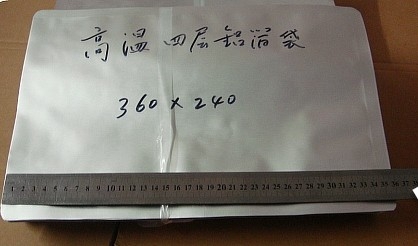 高温四层铝箔袋
360 x 240
1 2 3 4 5 6 7 8 9 10 11 12 13 14 15 16 17 18 19 20 21 22 23 24 25 26 27 28 29 30 31 32 33 34 35 36 37